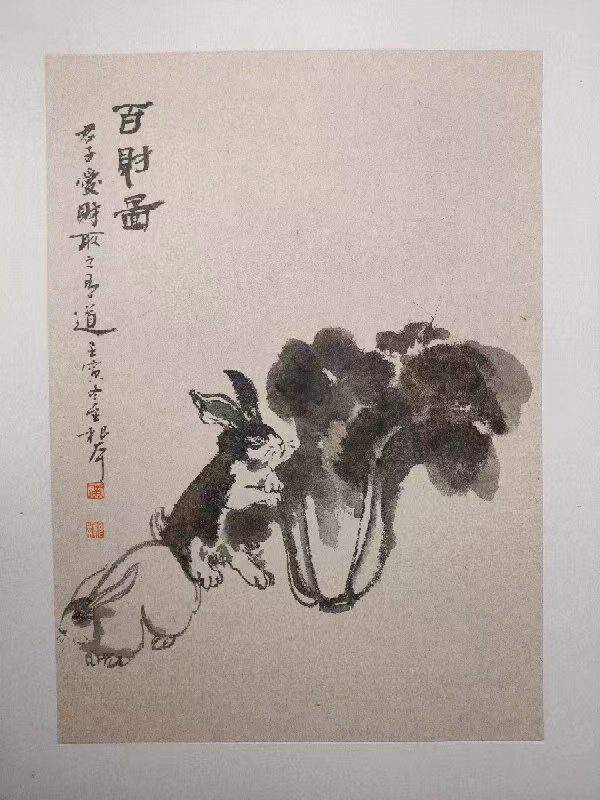 百財圖
君子愛財取之有道
壬寅冬金根作